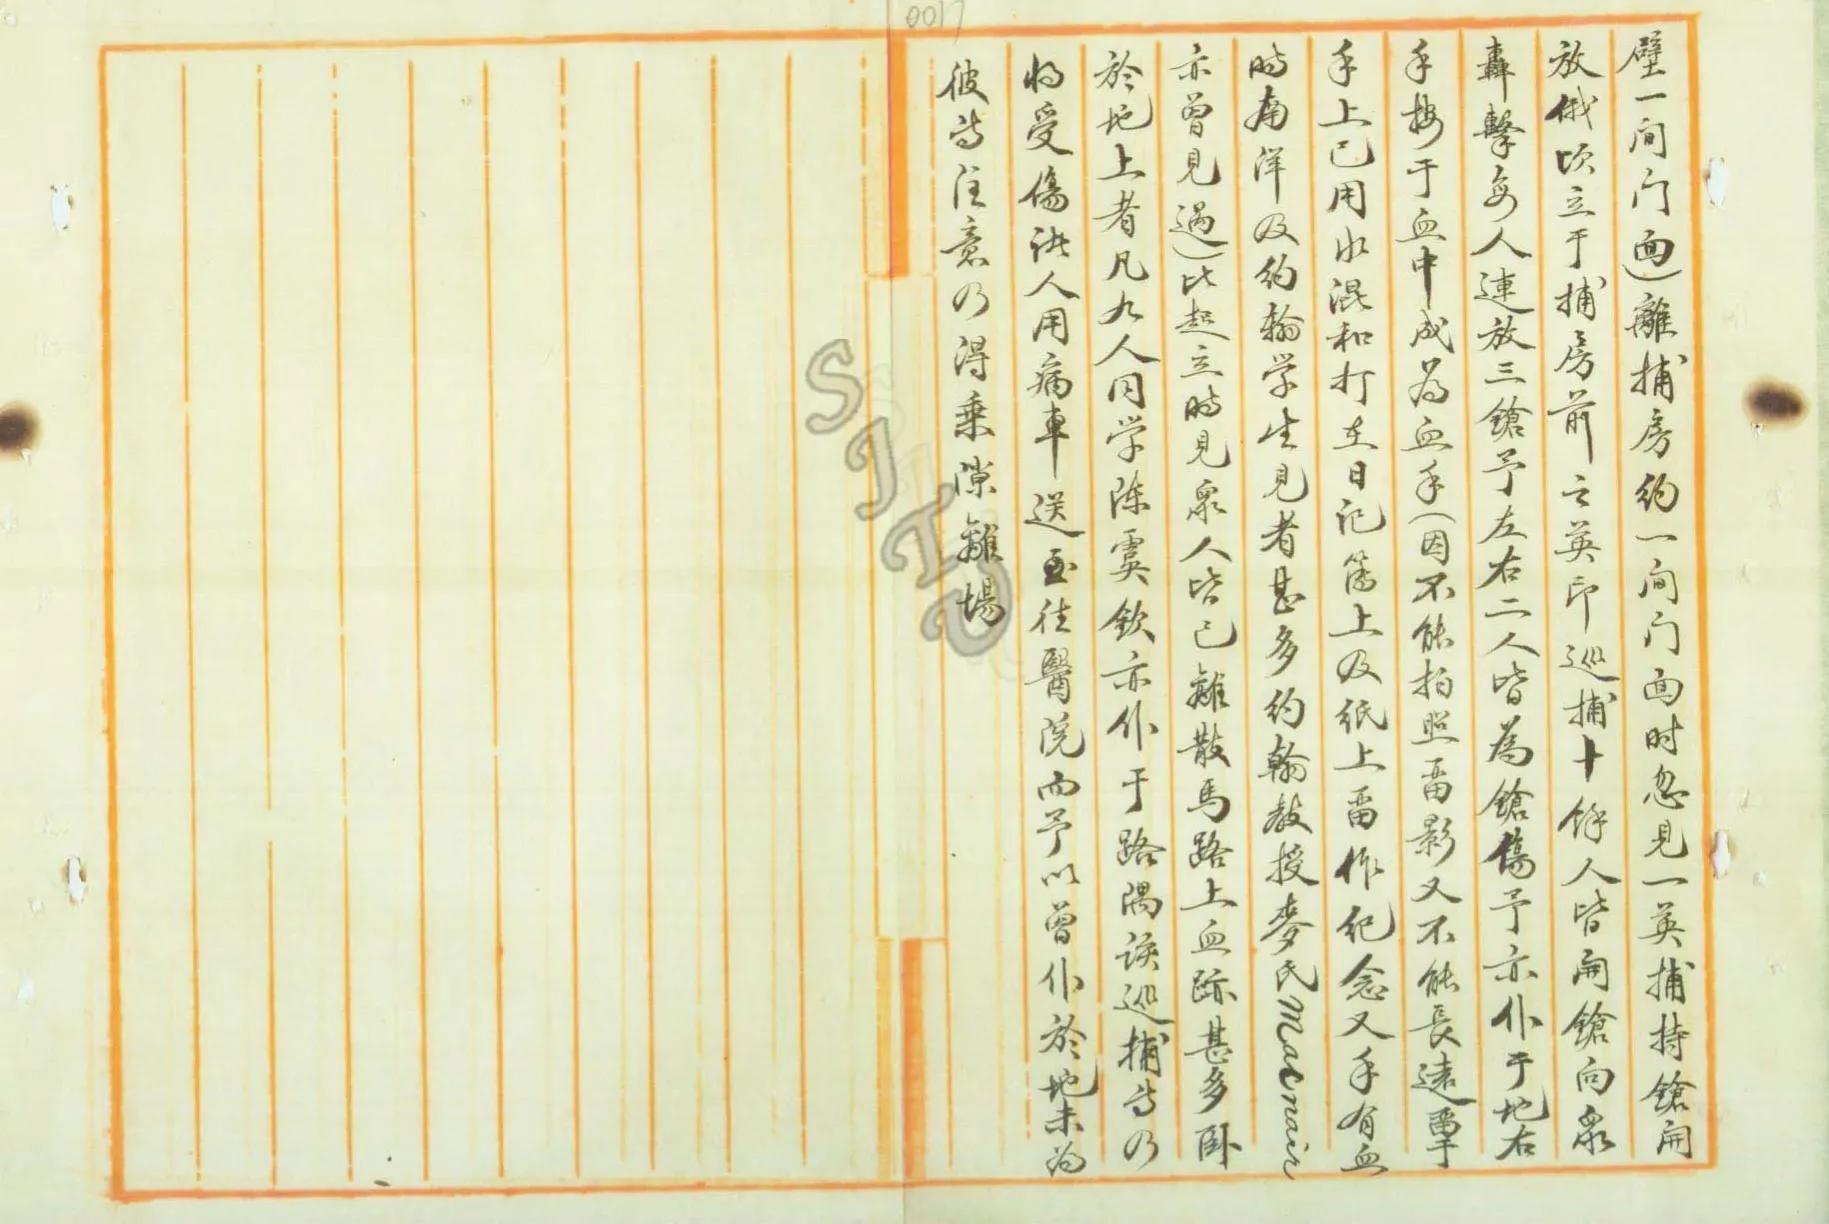 0017
壁一间门面)離捕房约一间门面时忽見一英捕持鎗開
放俄顷立于捕房前之英印巡捕十餘人皆開鎗向衆
轟擊每人連放三鎗予左右二人皆為鎗傷予亦仆于地右
手按于血中成为血手(因不能拍照畱影又不能長遠畱
手上已用水混和打在日记簿上及纸上畱作纪念又手有血
时南洋及约翰学生見者甚多约翰教授麥氏Macnair
亦曾見過)比起立时見衆人皆已離散馬路上血跡甚多卧
於地上者凡九人同学陈虞钦亦仆于路隅該巡捕等乃
将受傷诸人用病車送至往醫院而予以曾仆於地未为
彼等注意乃得乘隙離場
SJTU